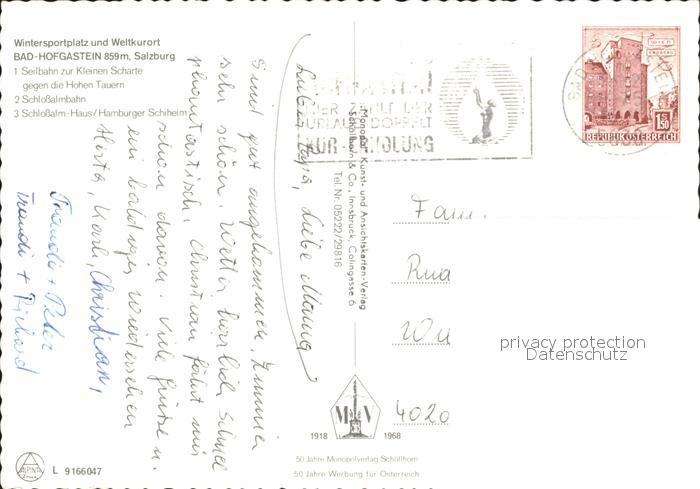 Wintersportplatz und Weltkurort
BAD-HOFGASTEIN 859m, Salzburg
1 Seilbahn zur Kleinen Scharte
gegen die Hohen Tauern
2 Schloßalmbahn
3 Schloßalm-Haus/Hamburger Schiheim
Lieber Papa, Liebe Mama,
Sind gut angekommen, Zimmer
sehr schön. Wetter herrlich, Schnee
phantastisch. Christian fährt mir
schon davon. Viele Grüsse u.
ein baldiges Wiedersehen
Herta, Karli, Christian,
Traudi + Peter
Traudi + Richard
Monopol Kunst- und Ansichtskarten-Verlag
Schöllhorn & Co., Innsbruck, Collingasse 6
Tel. Nr. 05222/29816
HIER ZÄHLT DER
URLAUB DOPPELT
KUR-ERHOLUNG
REPUBLIK ÖSTERREICH
1.50
Fam.
Rud
4020
privacy protection
Datenschutz
M V
1918 1968
50 Jahre Monopolverlag Schöllhorn
50 Jahre Werbung für Österreich
ALPINA
L 9166047